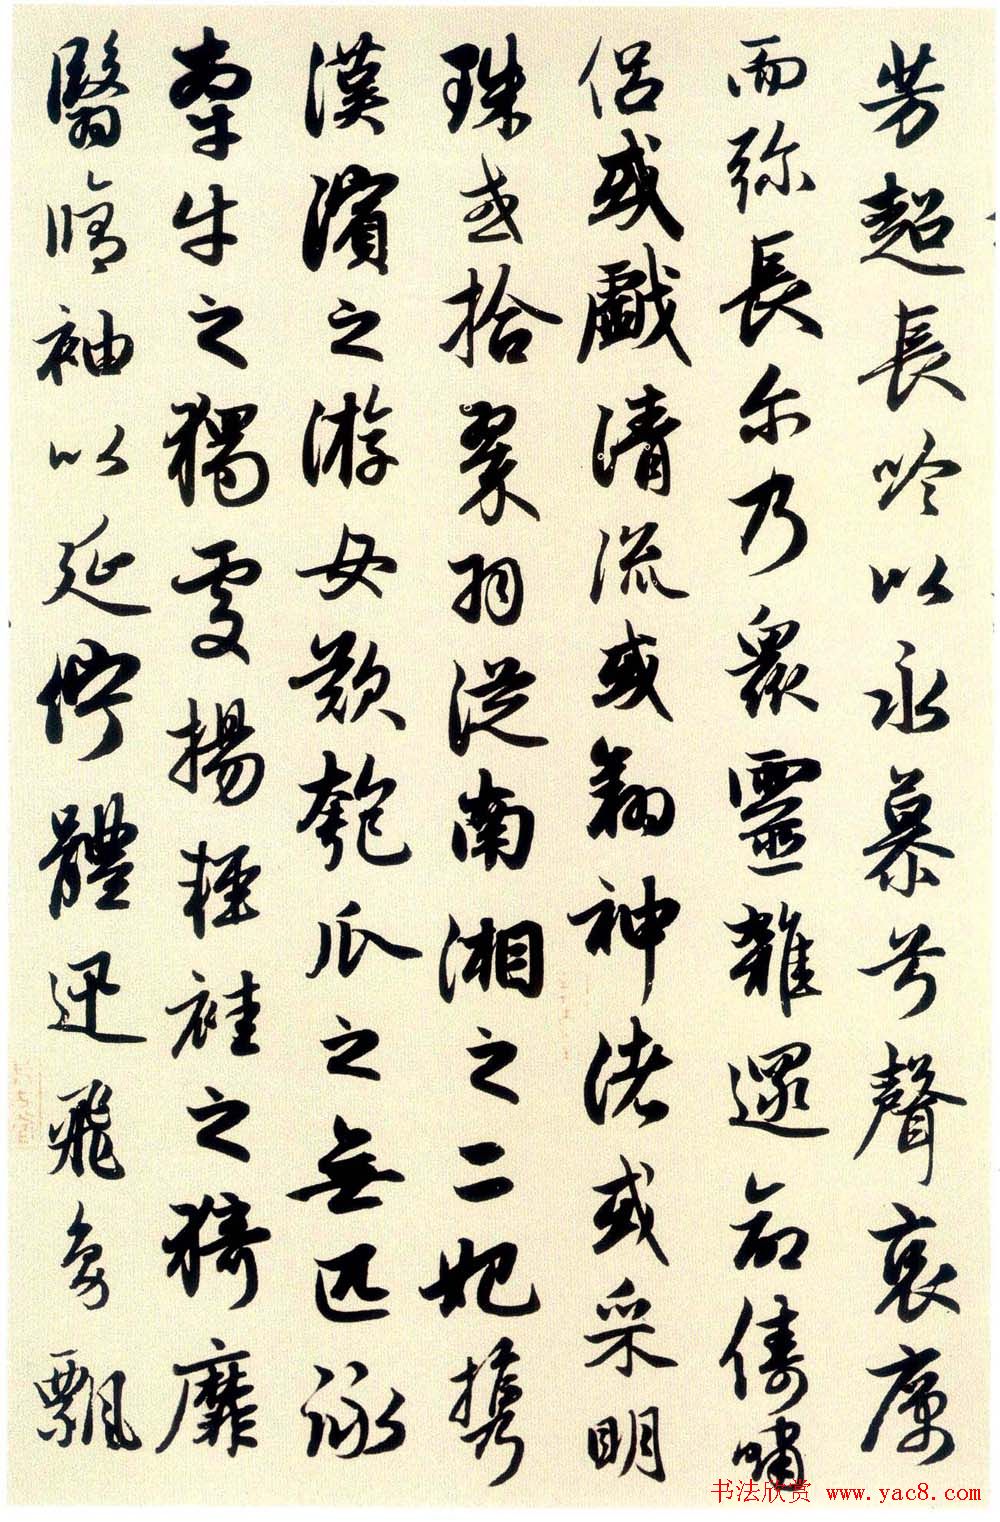 芳超長吟以永慕兮聲哀厲
而弥長尔乃衆靈雜遝命儔嘯
侣或戲清流或翱神渚或采明
珠或拾翠羽從南湘之二妃攜
漢濱之游女歎匏瓜之無匹詠
牽牛之獨處揚輕袿之猗靡
翳脩袖以延佇體迅飛鳧飄
书法欣赏 www.yac8.com